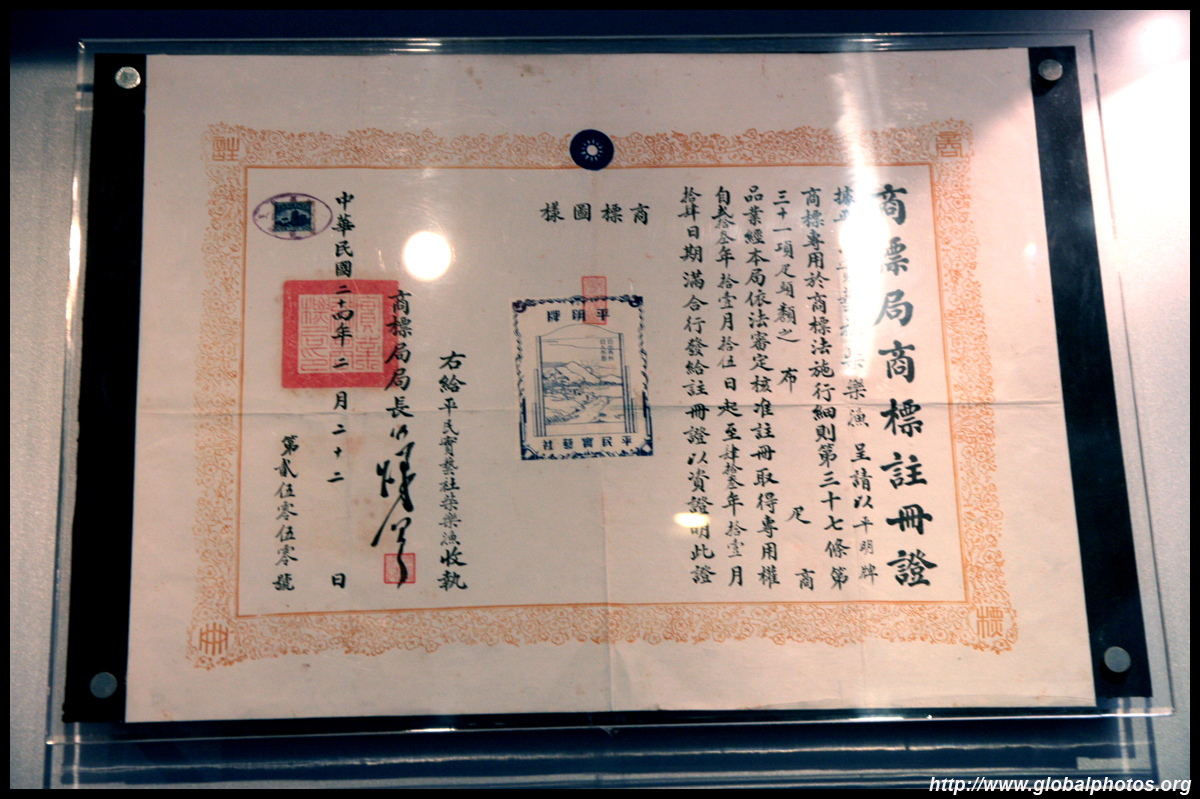 商標局商標註冊證
據柴樂漁呈請以平明牌
商標專用於商標法施行細則第三十七條第
三十一項疋頭類之 布 疋 商
品業經本局依法審定核准註冊取得專用權
自貳拾叁年拾壹月拾伍日起至肆拾叁年拾壹月
拾肆日期滿合行發給註冊證以資證明此證
商標圖樣
平明牌
平民實藝社
右給平民實藝社柴樂漁收執
商標局局長
中華民國二十四年二月二十二日
第貳伍零伍零號
商標註冊
http://www.globalphotos.org